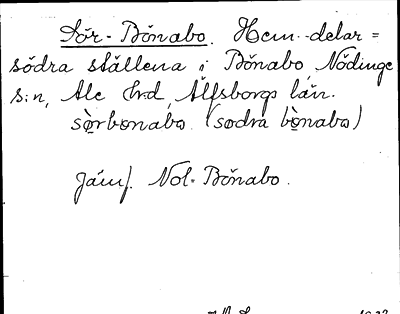 Sör-Bönabo. Hem-delar =
södra ställena i Bönabo Nödinge
s:n, Ale hd, Älfsborgs län.
sörbonabo (södra bònabo)
Jämf. Nol-Bönabo.